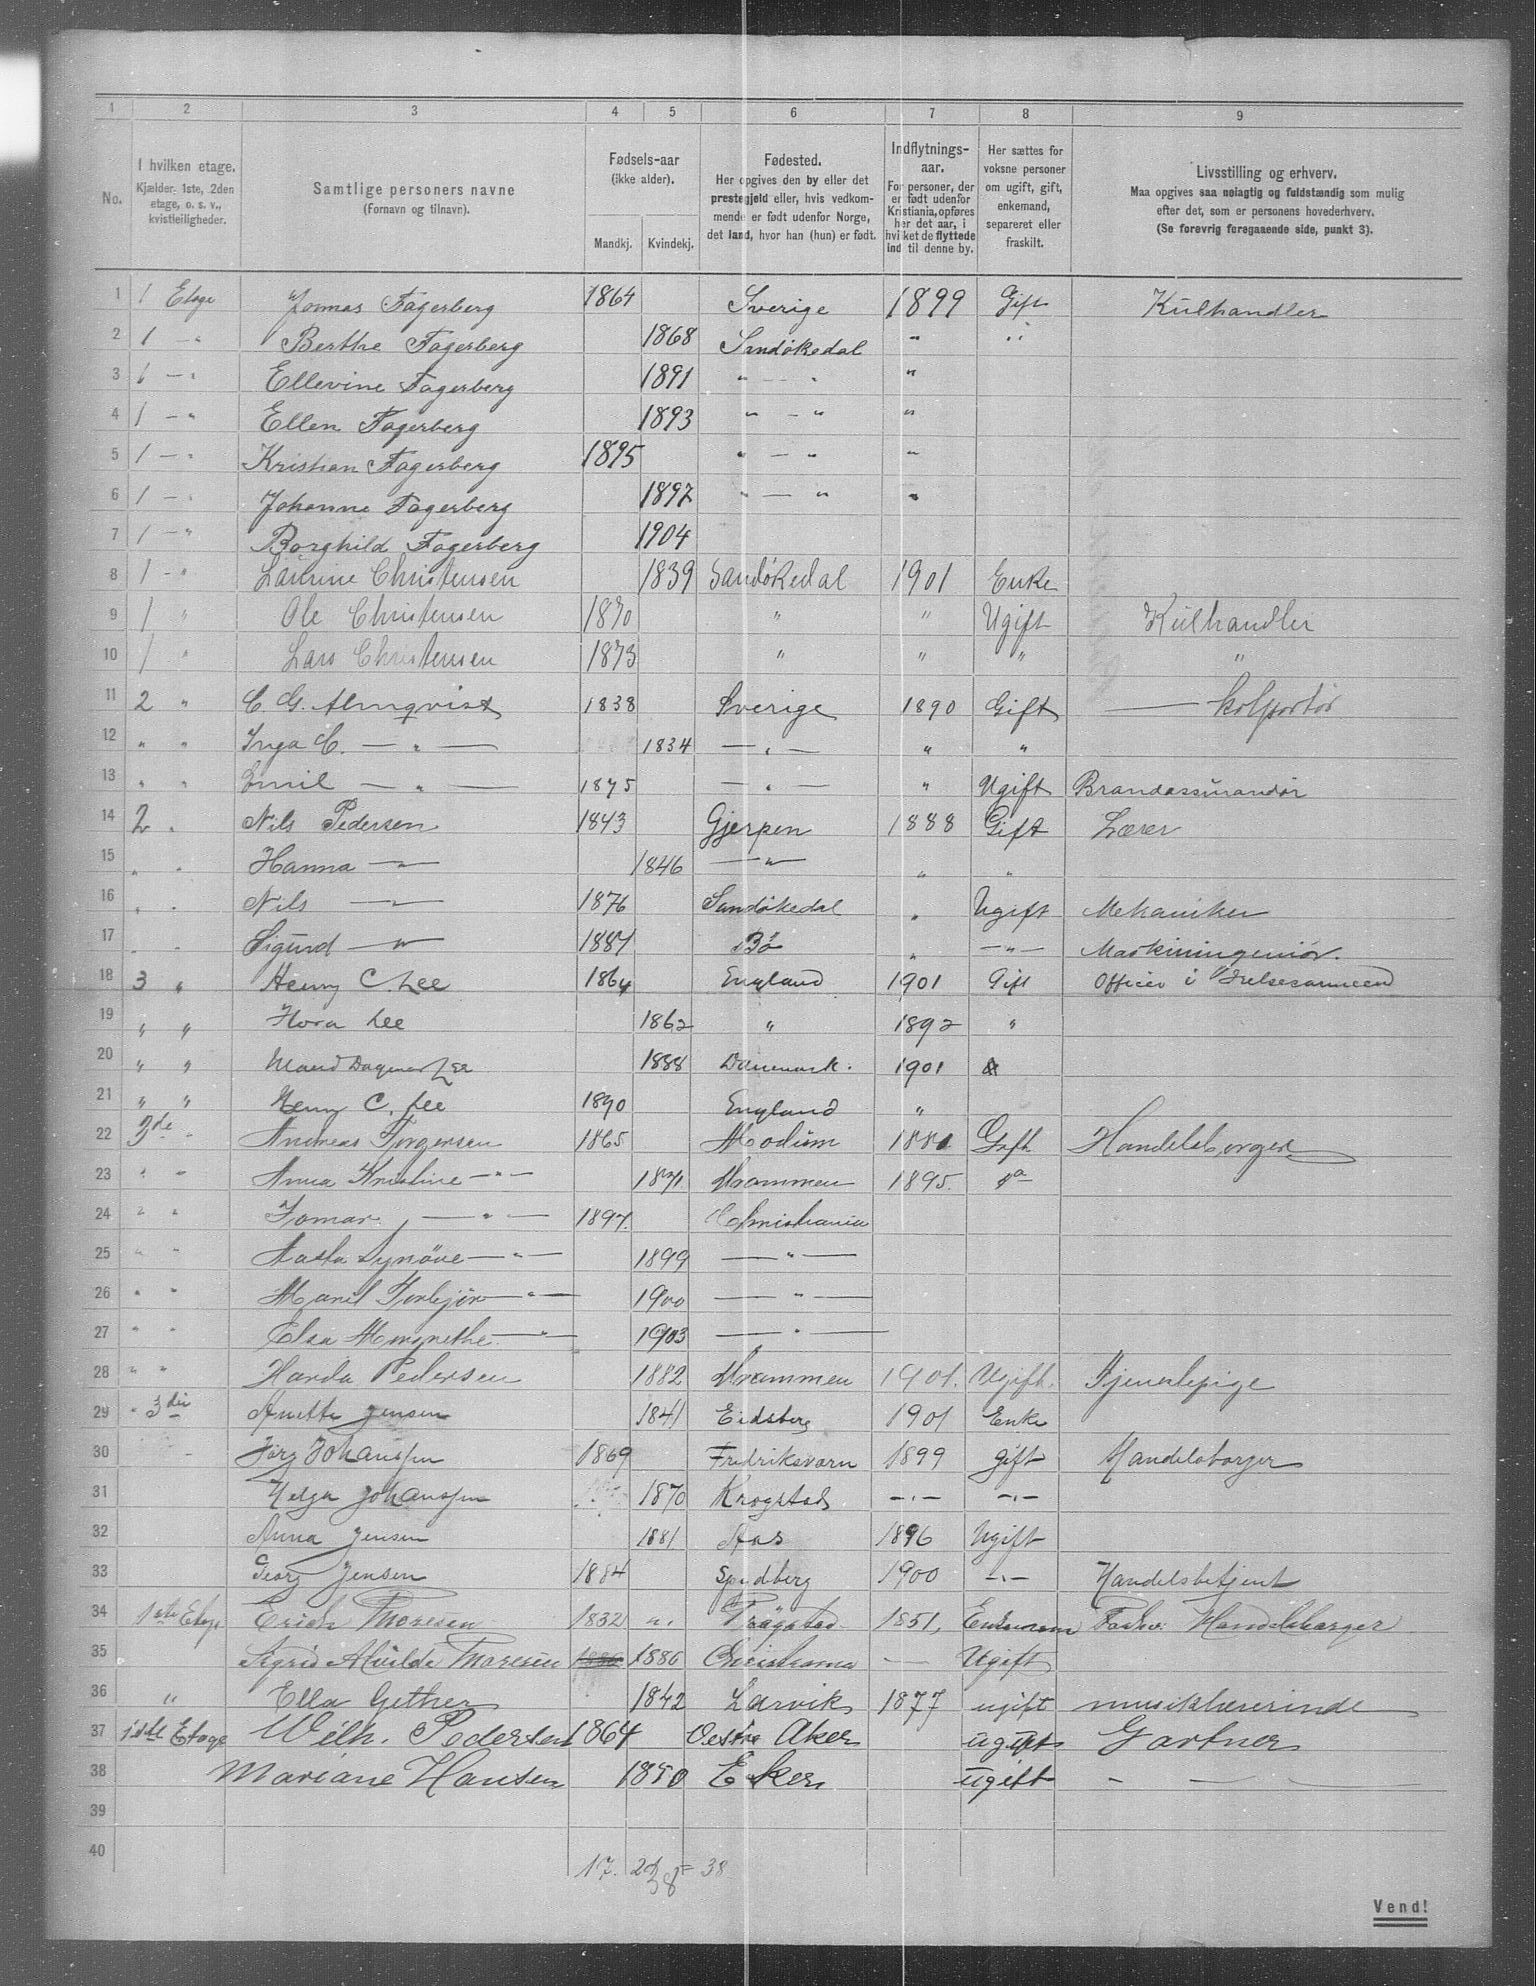 1 2 3 4 5 6 7 8 9
No.
I hvilken etage.
Kjælder. 1ste, 2den
etage, o. s. v.,
kvistleiligheder.
Samtlige personers navne
(Fornavn og tilnavn).
Fødsels-aar
(ikke alder).
Mandkj. Kvindekj.
Fødested.
Her opgives den by eller det
prestegjeld eller, hvis vedkom-
mende er født udenfor Norge,
det land, hvor han (hun) er født.
Indflytnings-
aar.
For personer, der
er født udenfor
Kristiania, opføres
her det aar, i
hvilket de flyttede
ind til denne by.
Her sættes for
voksne personer
om ugift, gift,
enkemand,
separeret eller
fraskilt.
Livsstilling og erhverv.
Maa opgives saa nøiagtig og fuldstændig som mulig
efter det, som er personens hovederhverv.
(Se forøvrig foregaaende side, punkt 3).
1 1 Etage Jonnas Fagerberg 1864 Sverige 1899 Gift Kulhandler
2 1 — " Berthe Fagerberg 1868 Sandøkedal " "
3 1 — " Ellevine Fagerberg 1891 " — " "
4 1 — " Ellen Fagerberg 1893 " — " "
5 1 — " Kristian Fagerberg 1895 " — " "
6 1 — " Johanne Fagerberg 1897 " — " "
7 1 — " Borghild Fagerberg 1904
8 1 — " Laurine Christensen 1839 Sandøkedal 1901 Enke
9 1 " Ole Christensen 1870 " " Ugift Kulhandler
10 1 " Lars Christensen 1873 " " " "
11 2 " C. G. Almqvist 1838 Sverige 1890 Gift — kolportør
12 " " Inga C. — " — 1834 — " — " "
13 " " Emil — " — 1875 — " — " Ugift Brandassurandør
14 2 " Nils Pedersen 1843 Gjerpen 1888 Gift Lærer
15 " " Hanna — " — 1846 — " — " "
16 " " Nils — " — 1876 Sandøkedal " Ugift Mekaniker
17 " " Sigurd — " — 1887 Bø " — " — Maskiningeniør.
18 3 " Henry C. Lee 1864 England 1901 Gift Officer i Frelsesarmeen
19 " " Flora Lee 1862 " 1892 "
20 " " Maud Dagmar Lee 1888 Danmark. 1901
21 " " Henry C. Lee 1890 England "
22 3de " Andreas Torgersen 1865 Modum 1881 Gift Handelsborger
23 " " Anna Kristine — " — 1871 Drammen 1895.
24 " " — " — 1897. Christiania
25 " " Aasta Synøve — " — 1899 — " —
26 " " — " — 1900 — " —
27 " " Elsa Margrethe — " — 1903 — " —
28 " " Harda Pedersen 1882 Drammen 1901. Ugift. Tjenestepige
29 " 3die Anette Jensen 1841 Eidsberg 1901 Enke
30 Johanssen 1869 Fredriksværn 1899 gift Handelsborger
31 Helga Johanssen 1870 Krogstad — " — — " —
32 Anna Jensen 1881 Aas 1896 Ugift
33 Georg Jensen 1884 Spydberg 1900 — " — Handelsbetjent
34 1ste Etage Erich Thoresen 1832 " Trøgstad 1851, Enkemand Handelsborger
35 Sigrid Alvilde Thoresen 1886 1886 Christiania — Ugift
36 " Ella Gether 1842 Larvik 1877 ugift musiklærerinde
37 1ste Etage Wilh. Pedersen 1864 Oestre Aker ugift Gartner
38 Mariane Hansen 1850 Eker ugift — — —
39
40
17. 21 = 38
38
Vend!